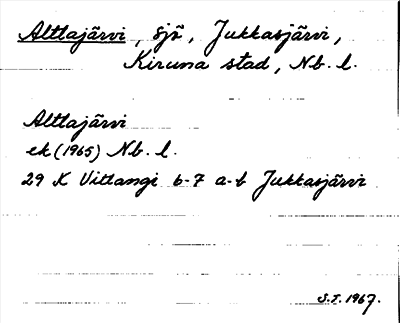 Alttajärvi, sjö, Jukkasjärvi,
Kiruna stad, Nb. l.
Alttajärvi
ek (1965) Nb. l.
29 K Vittangi 6-7 a-b Jukkasjärvi
S.I. 1967.